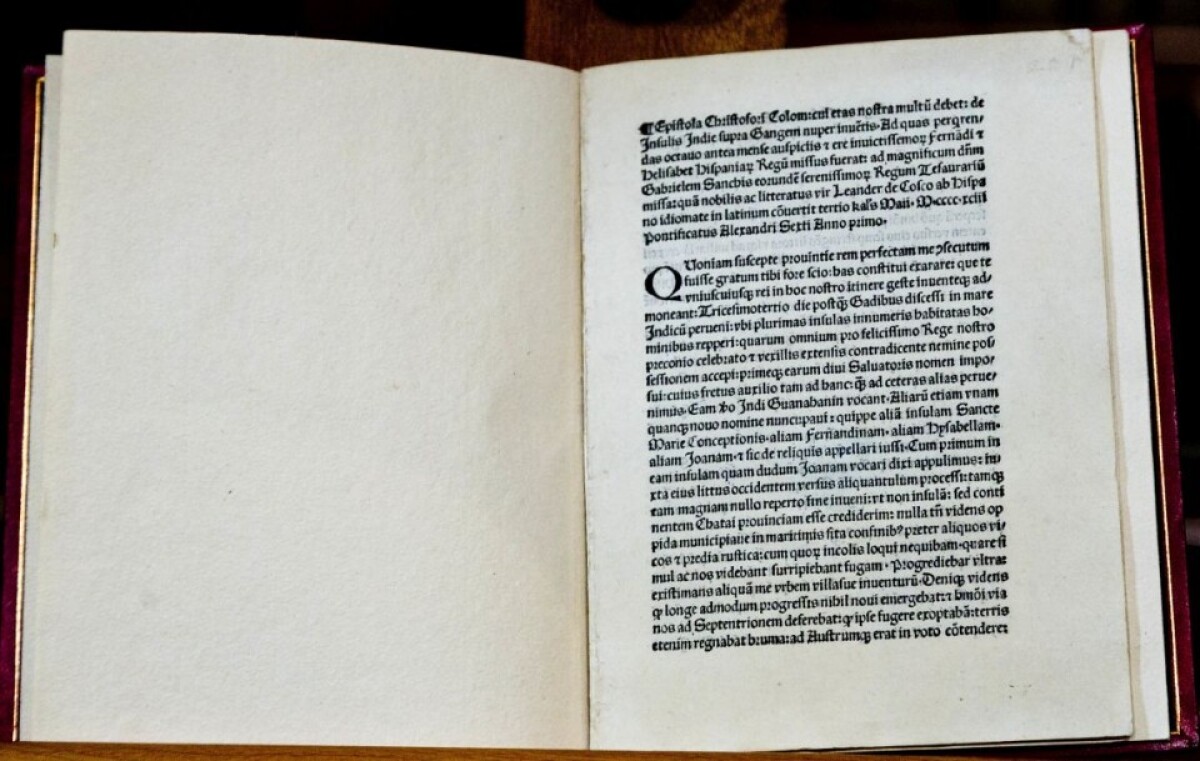 ¶ Epistola Christofori Colom: cui etas nostra multū debet: de
Insulis Indie supra Gangem nuper inuētis. Ad quas perqren/
das octauo antea mense auspiciis ⁊ ere inuictissimoꝝ Fernādi ⁊
Helisabet Hispaniaꝝ Regū missus fuerat: ad magnificum dñm
Gabrielem Sanchis eorundē serenissimoꝝ Regum Tesaurariū
missa: quā nobilis ac litteratus vir Leander de Cosco ab Hispa
no idiomate in latinum cōuertit tertio kal's Maii. M.cccc.xciii
Pontificatus Alexandri Sexti Anno primo.
QUoniam suscepte prouintie rem perfectam me ↄsecutum
fuisse gratum tibi fore scio: has constitui exarare: que te
vniuscuiusqꝫ rei in hoc nostro itinere geste inuenteqꝫ ad/
moneant: Tricesimotertio die postqꝫ Gadibus discessi in mare
Indicū perueni: vbi plurimas insulas innumeris habitatas ho/
minibus repperi: quarum omnium pro felicissimo Rege nostro
preconio celebrato ⁊ vexillis extensis contradicente nemine pos/
sessionem accepi: primeqꝫ earum diui Saluatoris nomen impo/
sui: cuius fretus auxilio tam ad hanc: qꝫ̄ ad ceteras alias perue/
nimus. Eam ꝟo Indi Guanahanin vocant. Aliarū etiam vnam
quanqꝫ nouo nomine nuncupaui: quippe aliā insulam Sancte
Marie Conceptionis. aliam Fernandinam. aliam Hysabellam.
aliam Joanam. ⁊ sic de reliquis appellari iussi. Cum primum in
eam insulam quam dudum Joanam vocari dixi appulimus: iu/
xta eius littus occidentem versus aliquantulum processi: tamqꝫ
eam magnam nullo reperto fine inueni: vt non insulā: sed conti
nentem Chatai prouinciam esse crediderim: nulla tñ videns op
pida municipiaue in maritimis sita confinibꝰ preter aliquos vi/
cos ⁊ predia rustica: cum quoꝝ incolis loqui nequibam. quare si
mul ac nos videbant surripiebant fugam. Progrediebar vltra:
existimans aliquā me vrbem villasue inuenturū. Deniqꝫ videns
ꝙ longe admodum progressis nihil noui emergebat: ⁊ hmōi via
nos ad Septentrionem deferebat: ꝙ ipse fugere exoptabā: terris
etenim regnabat bruma: ad Austrumqꝫ erat in voto cōtendere: